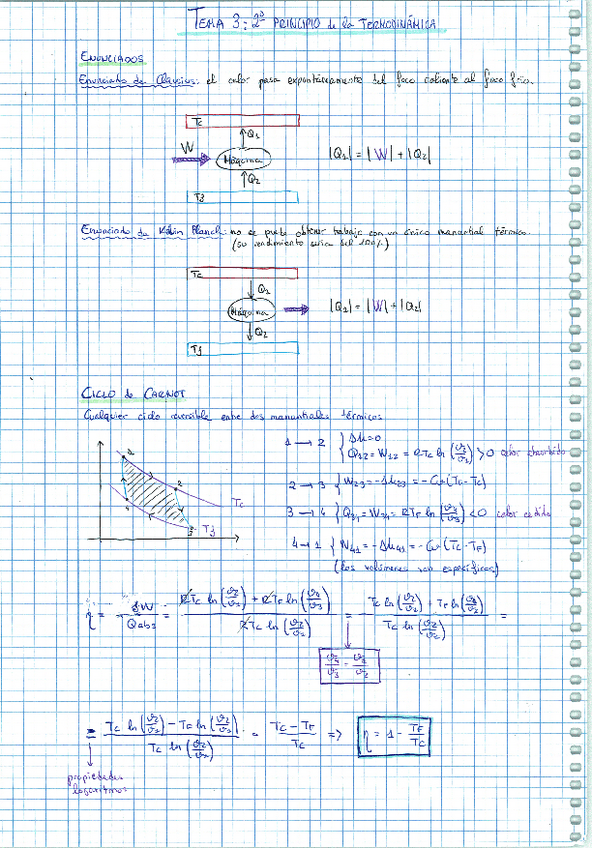 TEMA 3: 2º PRINCIPIO de la TERMODINÁMICA
ENUNCIADOS
Enunciado de Clausius: el calor pasa espontáneamente del foco caliente al foco frío.
Tc
↑Q1
W
Máquina
|Q1| = |W| + |Q2|
↑Q2
Tf
Enunciado de Kelvin Planck: no se puede obtener trabajo con un único manantial térmico.
(su rendimiento sería del 100%)
Tc
↓Q1
Máquina
|Q1| = |W| + |Q2|
↓Q2
Tf
CICLO de CARNOT
Cualquier ciclo reversible entre dos manantiales térmicos
1 → 2 { Δu=0
Q12 = W12 = R Tc ln (v2/v1) > 0 calor absorbido
2 → 3 { W23 = -Δu23 = -Cv (TF - Tc)
3 → 4 { Q34 = W34 = R TF ln (v4/v3) < 0 calor cedido
4 → 1 { W41 = -Δu41 = -Cv (Tc - TF)
(los volúmenes son específicos)
1
2
3
4
Tc
Tf
η = δW/Qabs = (R Tc ln (v2/v1) + R TF ln (v4/v3)) / (R Tc ln (v2/v1)) = (Tc ln (v2/v1) + TF ln (v4/v3)) / (Tc ln (v2/v1)) =
v4/v3 = v1/v2
= (Tc ln (v2/v1) - TF ln (v2/v1)) / (Tc ln (v2/v1)) = (Tc - TF)/Tc => η = 1 - TF/Tc
propiedades
logaritmos